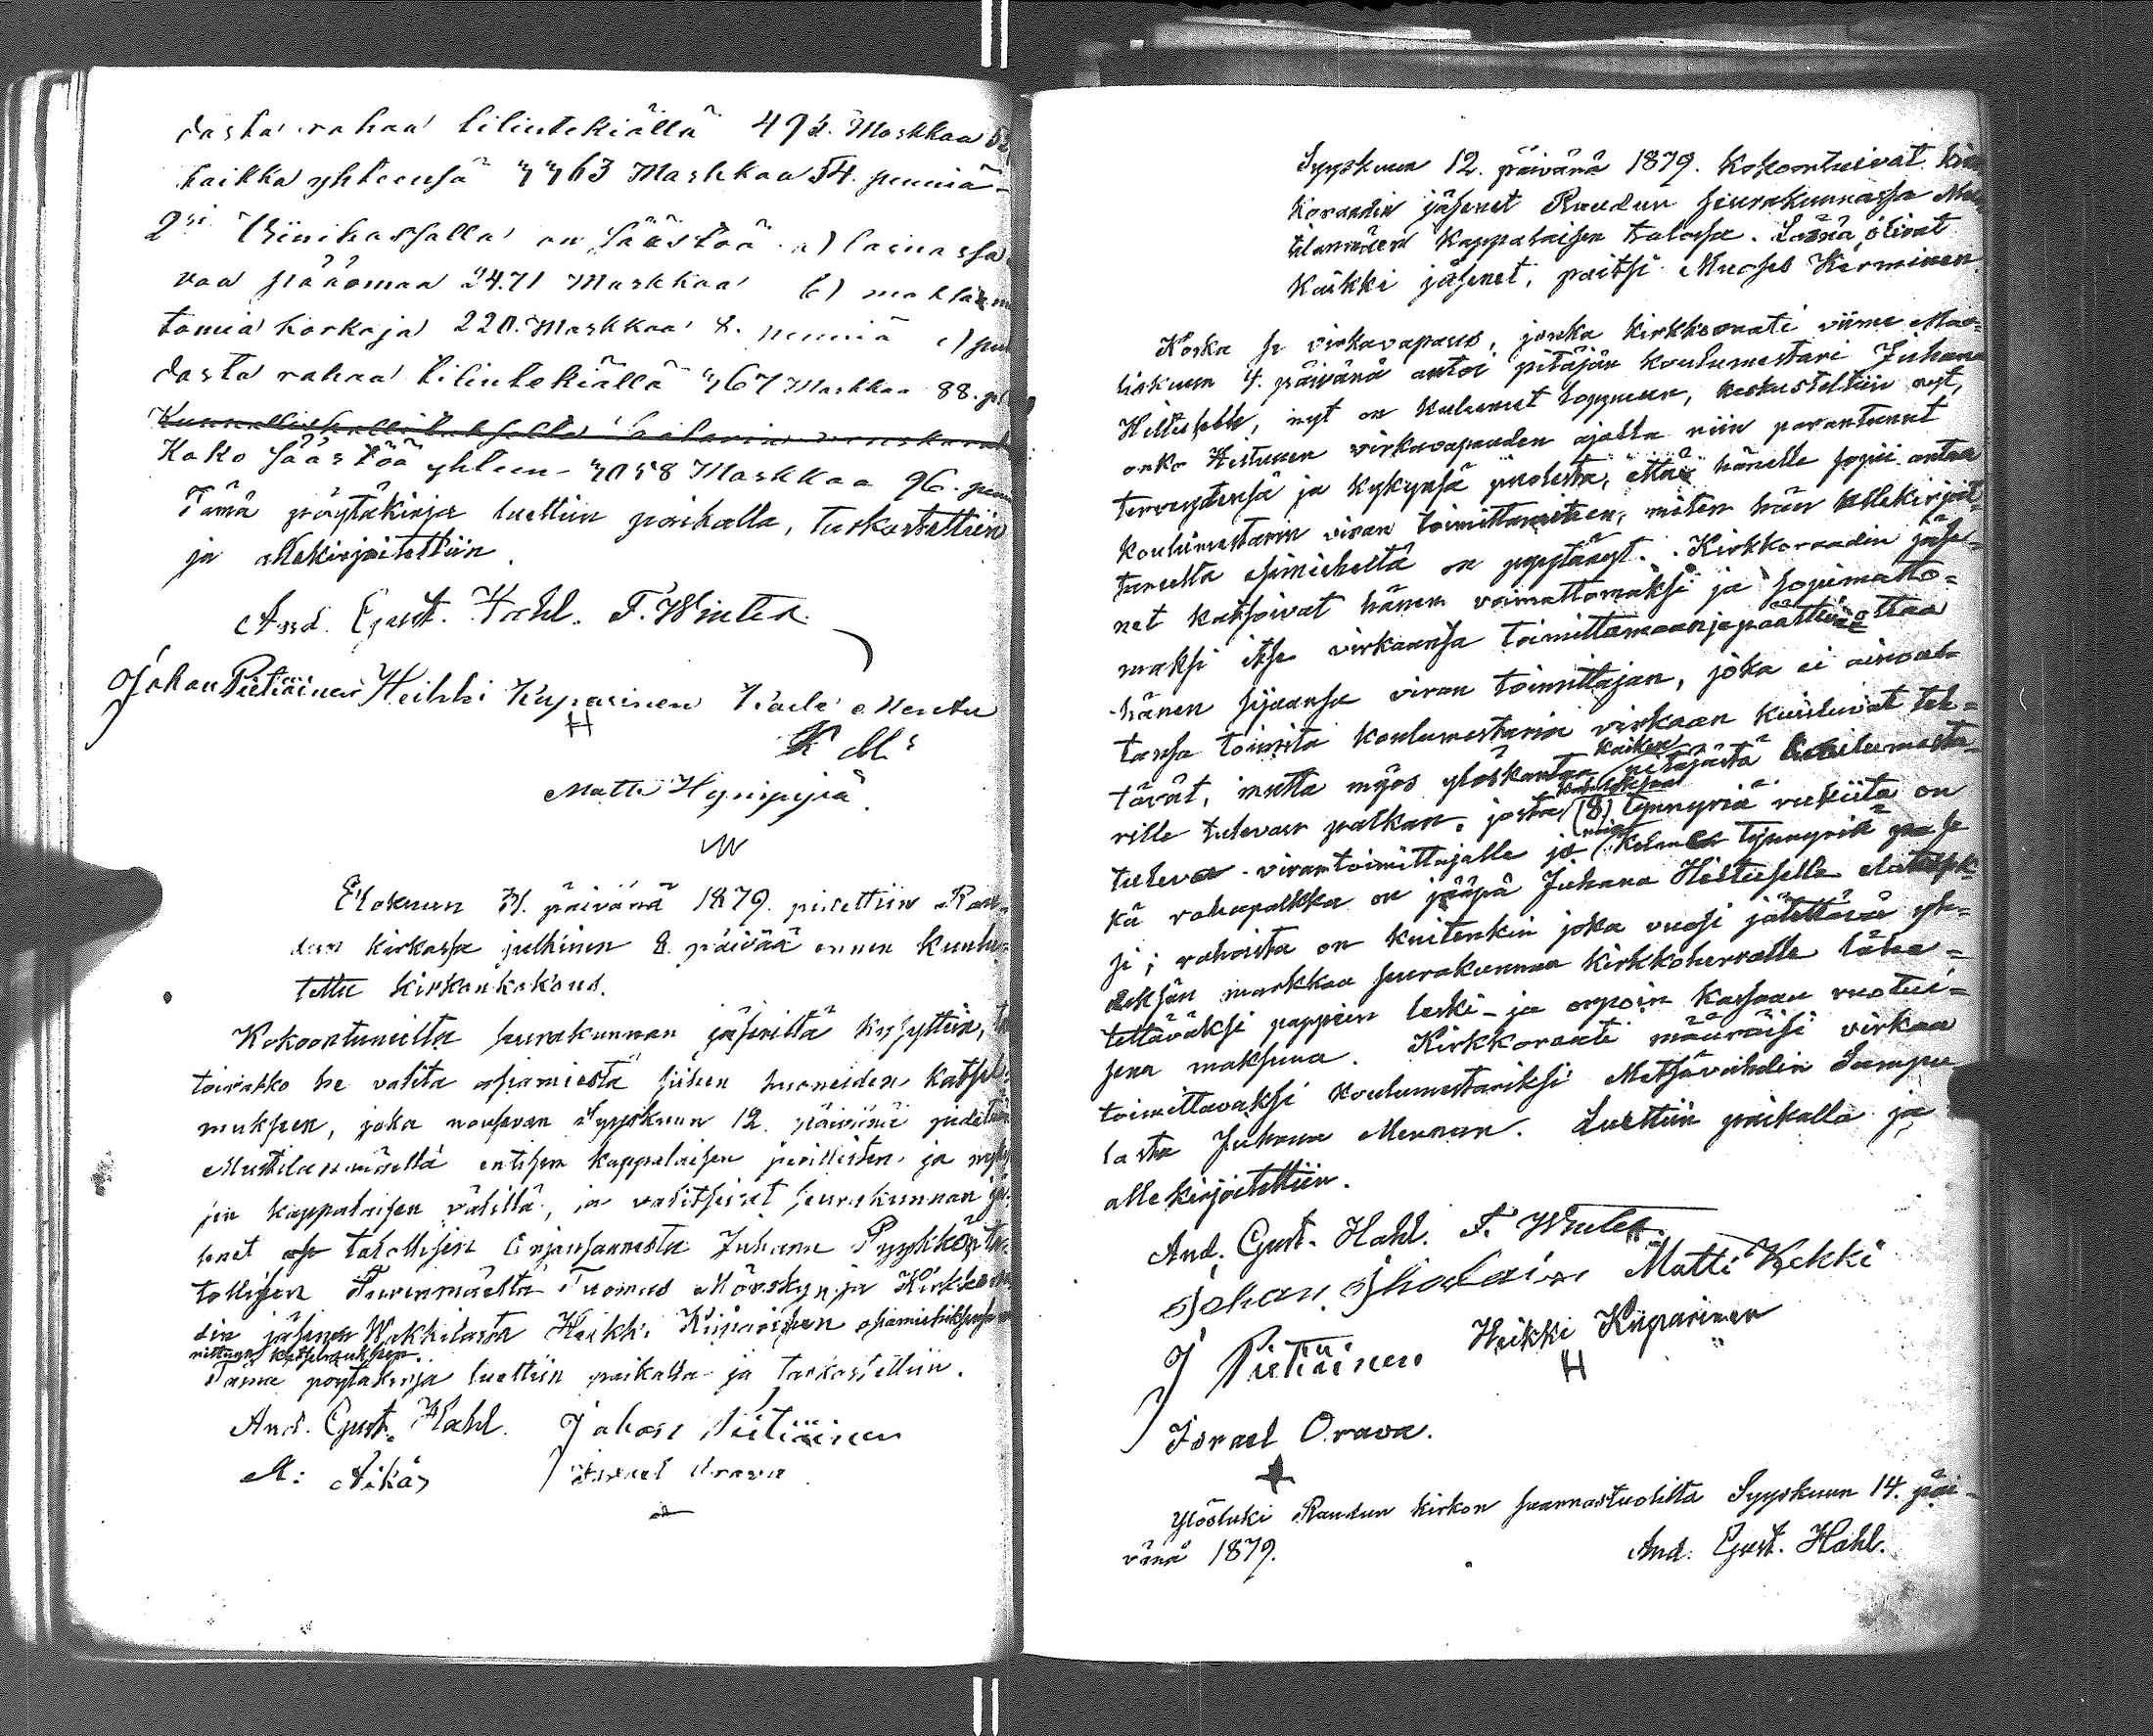 dasta rahaa tilintekiällä 493. Markkaa
kaikka yhteensä 3363 Markkaa 54. penniä
2si Viinikassalla on säästöä a) lainassa
vaa pääomaa 2471 Markkaa b) maksam
tomia korkoja 220. Markkaa 8. penniä c) puh
dasta rahaa tilintekiällä 367 Markkaa 88. p
Koko säästöä yhteen 3058 Markkaa 96. penn
Tämä pöytäkirja luettiin paikalla, tarkastettiin
ja allekirjoitettiin.
And. Gust. Hahl. F. Winter.
Johan Pietiäinen Heikki Kiiparinen Kaale Mentu
H
K M
Matti Hymppyiä.
Elokuun 31. päivänä 1879. pidettiin Rau-
dun kirkossa julkinen 8. päivää ennen kuulu-
tettu kirkonkokous.
Kokoontuneilta seurakunnan jäseniltä kysyttiin,
toivatko he valita asiamiestä siihen huoneiden katsel-
muksen, joka nousevan Syyskuun 12. päivänä pidetään
Mustilanmäellä entisen kappalaisen perillisten ja nyky
sen kappalaisen välillä, ja valitsivat seurakunnan jä-
senet talollisen Orjansaaresta Juhana Pyykkön
tollisen Tuomas Mörskyn ja Kirkkoraa
din jäsenen Wakkilasta Heikki Kiiparisen asiamiehiksensa
nittuun katselmuksen.
Tämä pöytäkirja luettiin paikalla ja tarkastettiin.
And. Gust. Hahl. Johan Pietiäinen
M: Äikäs Israel Orava
Syyskuun 12. päivänä 1879. Kokoontuivat kirk
koraadin jäsenet Raudun seurakunnassa Mus
tilanmäen Kappalaisen talossa. Läsnä olivat
kaikki jäsenet, paitsi Muoses Kerminen.
Koska se virkavapaus, jonka kirkkoraati viime Maa-
liskuun 4. päivänä antoi pitäjän koulumestari Juhana
Hiltuselle, nyt on kulunut loppuun, keskusteltiin nyt,
onko Hiltunen virkavapauden ajalla niin parantunut
terveytensä ja kykynsä puolesta, että hänelle sopii antaa
koulumestarin viran toimittamisen, miten hän allekirjoit-
taneelta esimieheltä on pyytänyt. Kirkkoraadin jäse-
net katsoivat hänen voimattomaksi ja sopimatto-
maksi itse virkaansa toimittamaan ja päättivät ottaa
hänen sijaansa viran toimittajan, joka ei ainoas-
tansa toimita koulumestarin virkaan kuuluvat teh-
tävät, mutta myös ylöskantaa kaiken pitäjästä koulumesta-
rille tulevan palkan, josta kahdeksan (8) tynnyriä rukiita on
tuleva virantoimittajalle ja tynnyriä ja se
kä rahapalkka on jääpä Juhana Hiltuselle elatuksek-
si; rahoista on kuitenkin joka vuosi jätettävä yh-
deksän markkaa seurakunnan kirkkoherralle lähe-
tettäväksi pappein leski- ja orpoin kassaan vuotui-
sena maksuna. Kirkkoraati määräisi virkaa
toimittavaksi koulumestariksi Metsävahdin Sumpu
lasta Juhana Mennun. Luettiin paikalla ja
allekirjoitettiin.
And. Gust. Hahl. F. Winter.
Johan Ihalainen Matti Kekki
J Pietiäinen Heikki Kiiparinen
H
Israel Orava.
Ylösluki Raudun kirkon saarnastuolilta Syyskuun 14. päi-
vänä 1879. And. Gust. Hahl.